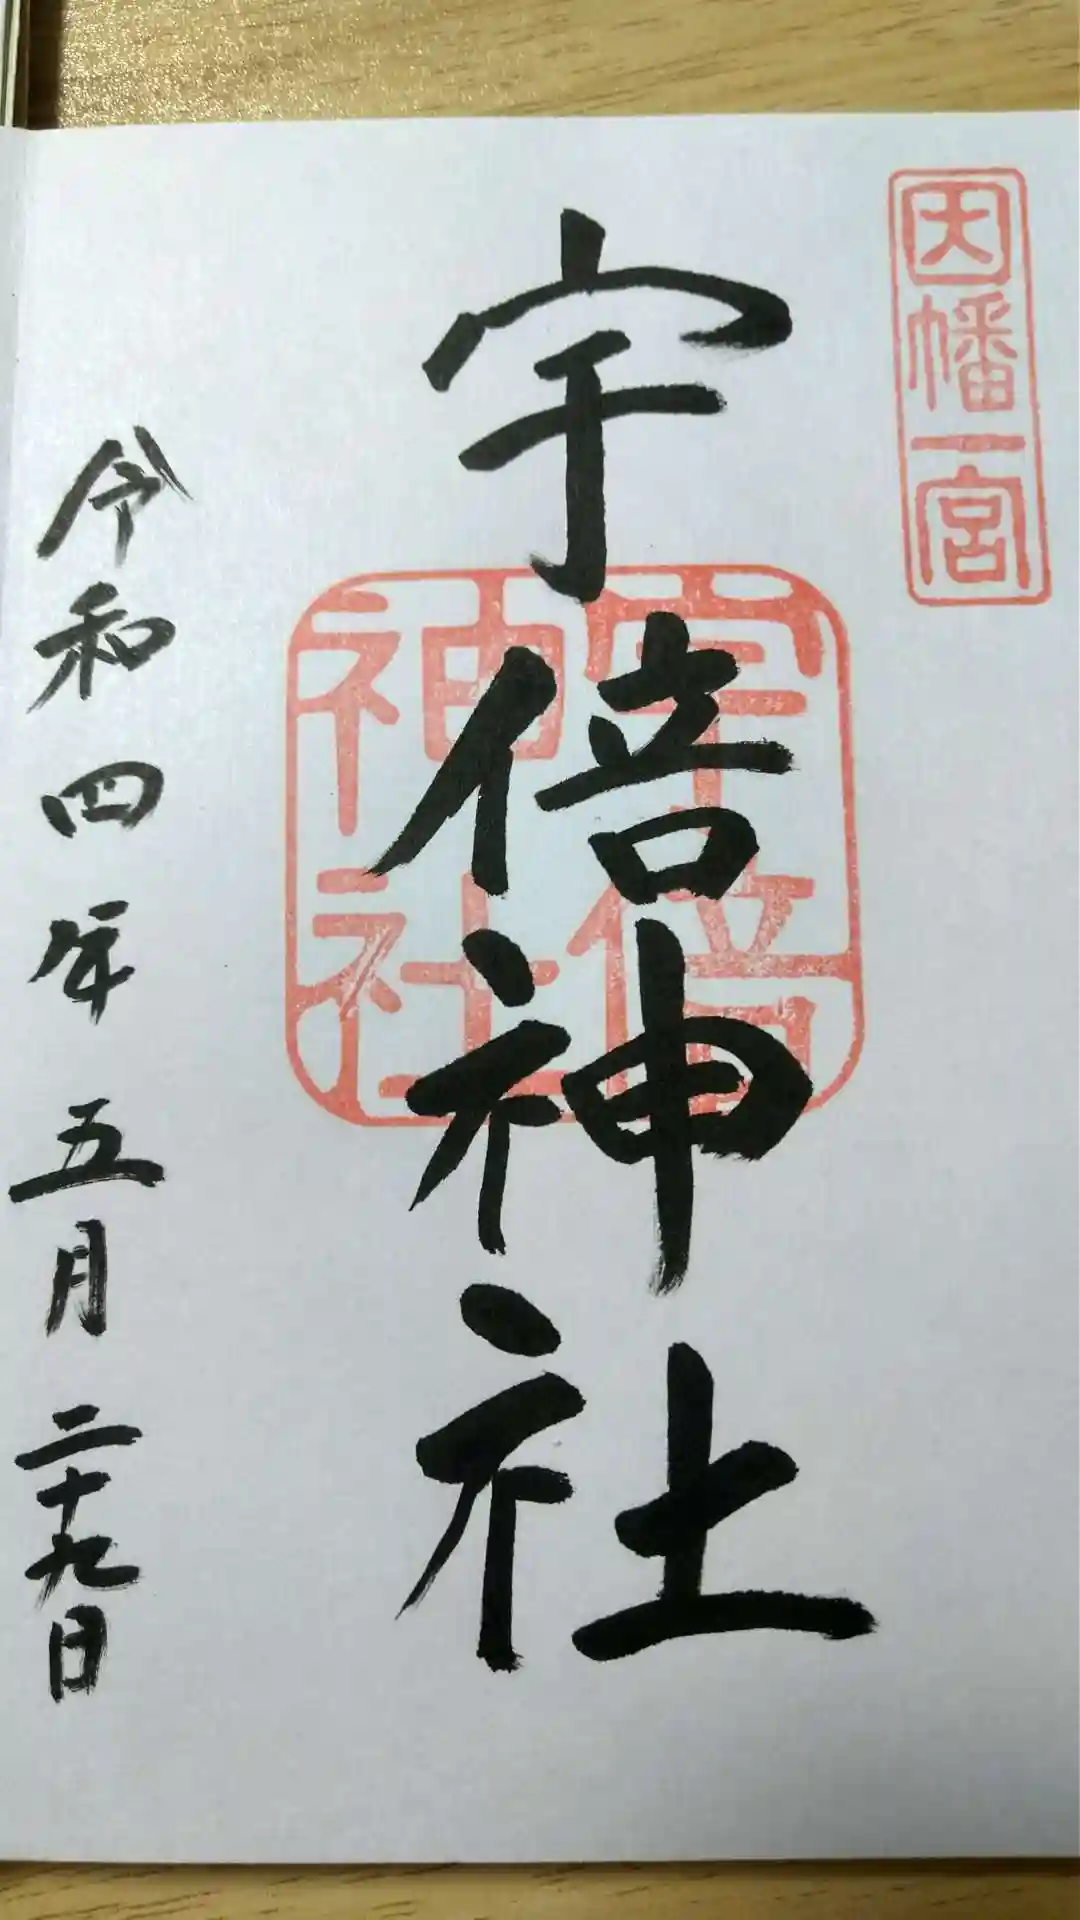 因幡一宮
宇倍神社
宇倍
神社
令和四年五月二十九日